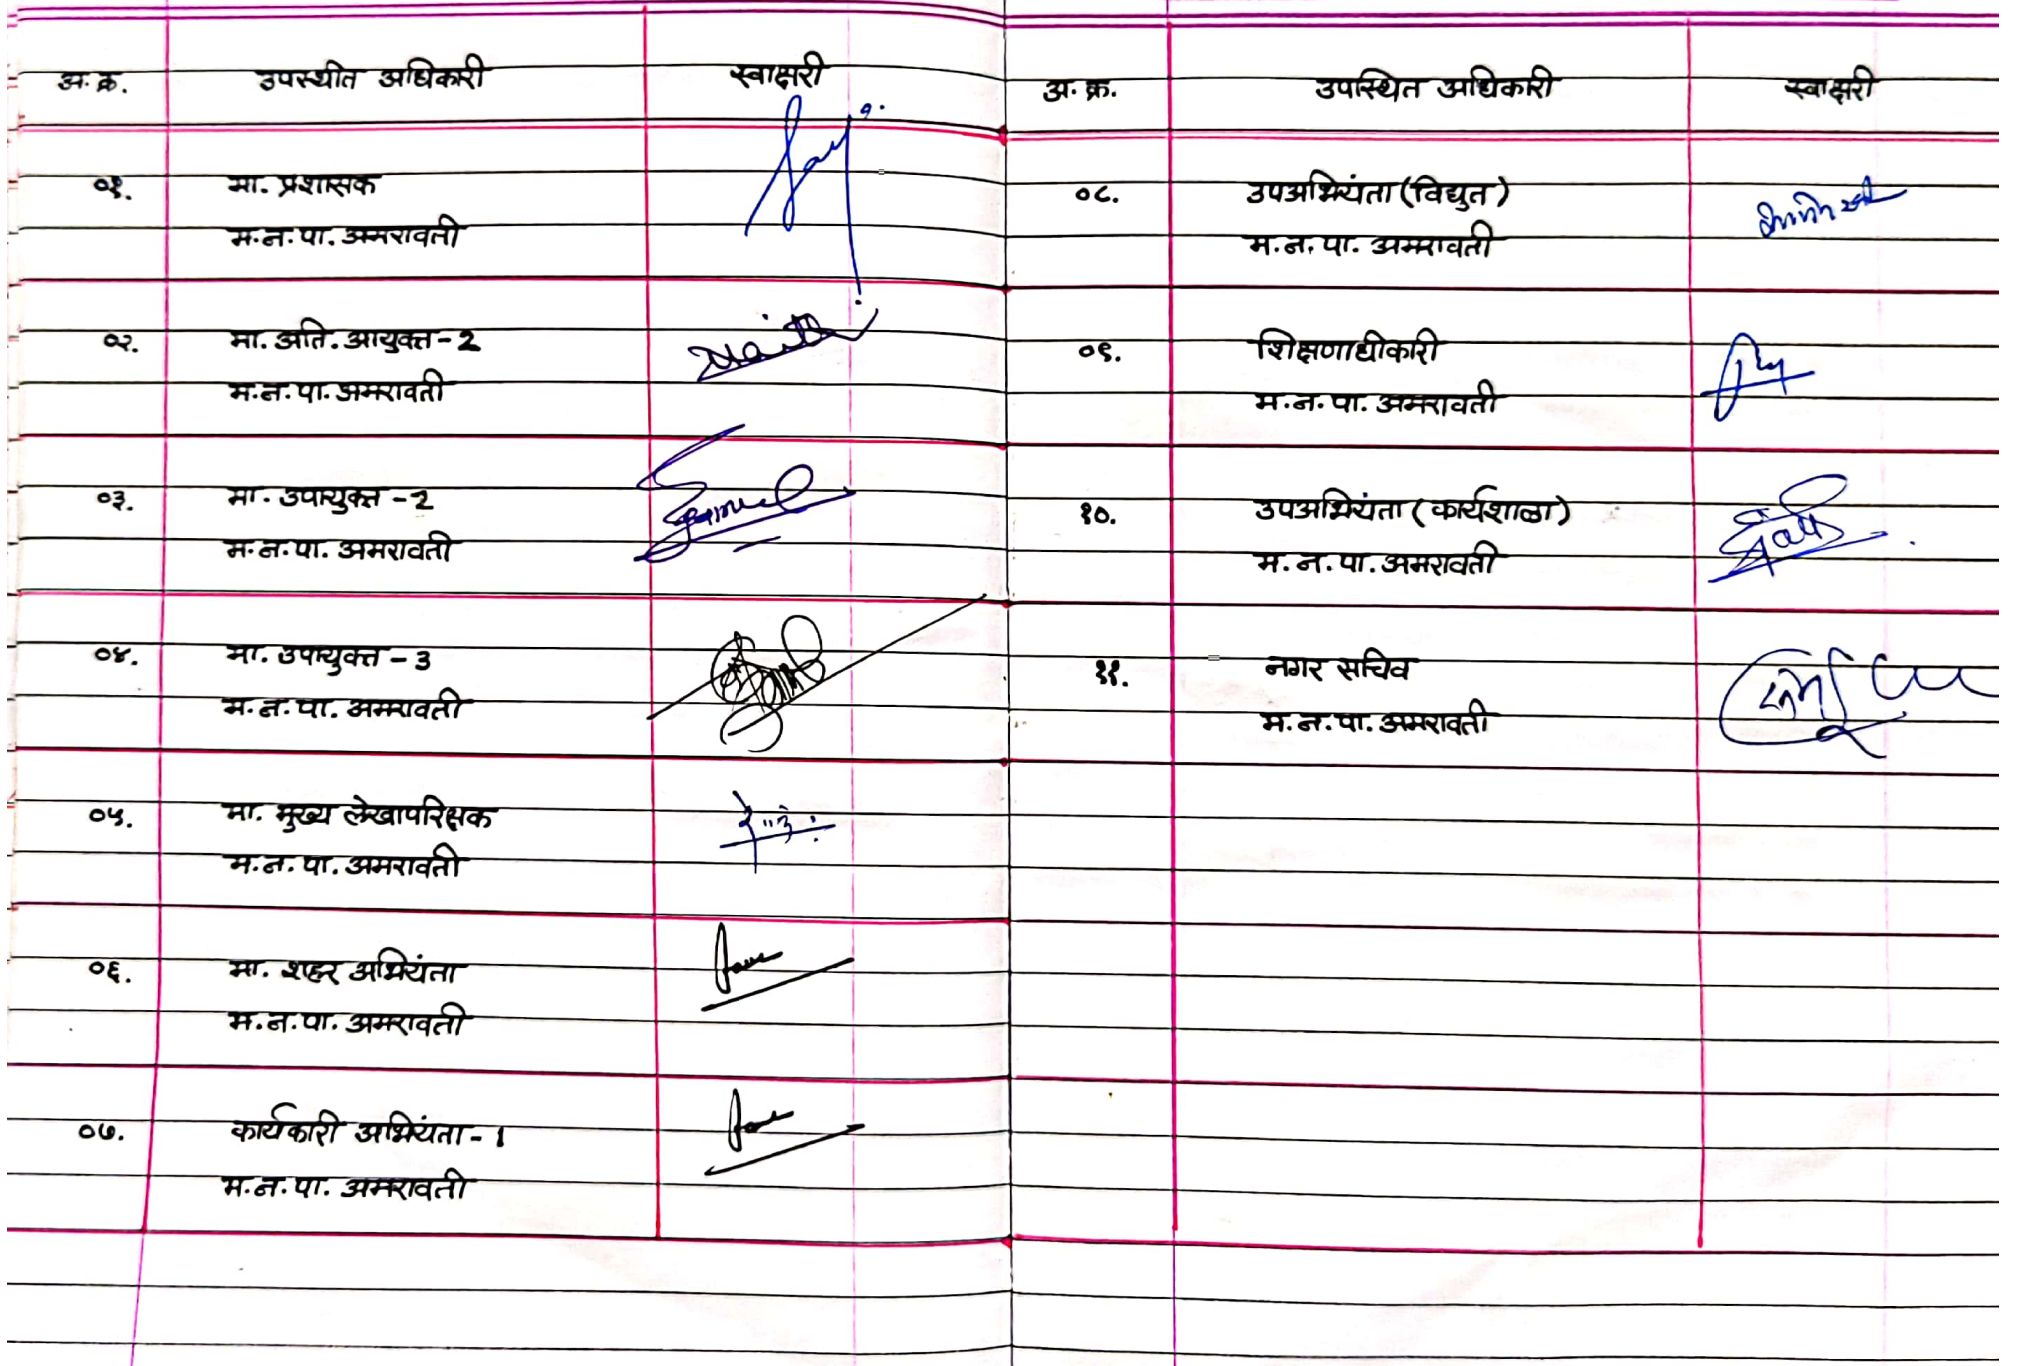 अ.क्र. उपस्थीत अधिकारी स्वाक्षरी
०१. मा. प्रशासक
म.न.पा. अमरावती
०२. मा. अति. आयुक्त-2
म.न.पा. अमरावती
०३. मा. उपायुक्त-2
म.न.पा. अमरावती
०४. मा. उपायुक्त-3
म.न.पा. अमरावती
०५. मा. मुख्य लेखापरिक्षक
म.न.पा. अमरावती
०६. मा. शहर अभियंता
म.न.पा. अमरावती
०७. कार्यकारी अभियंता-1
म.न.पा. अमरावती
अ.क्र. उपस्थित अधिकारी स्वाक्षरी
०८. उपअभियंता (विद्युत)
म.न.पा. अमरावती
०९. शिक्षणाधीकारी
म.न.पा. अमरावती
१०. उपअभियंता (कार्यशाळा)
म.न.पा. अमरावती
११. नगर सचिव
म.न.पा. अमरावती